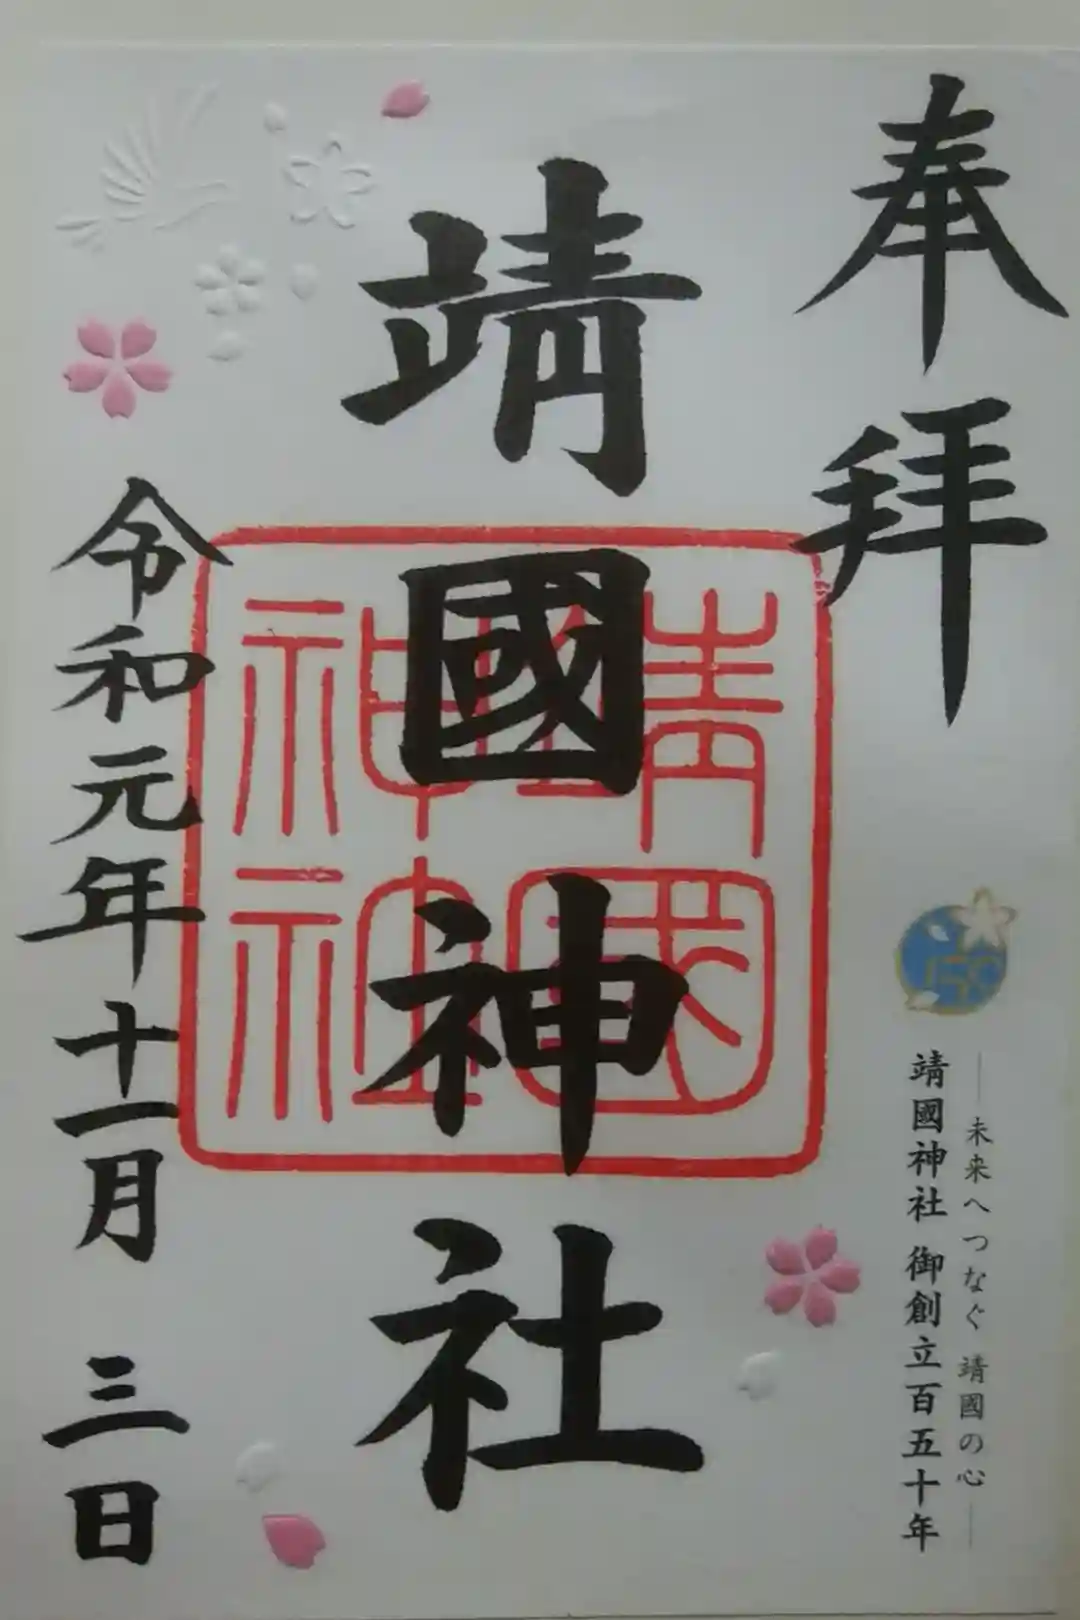 奉拝
―未来へつなぐ 靖國の心―
靖國神社 御創立百五十年
150
靖國神社
靖國
神社
令和元年十一月 三日